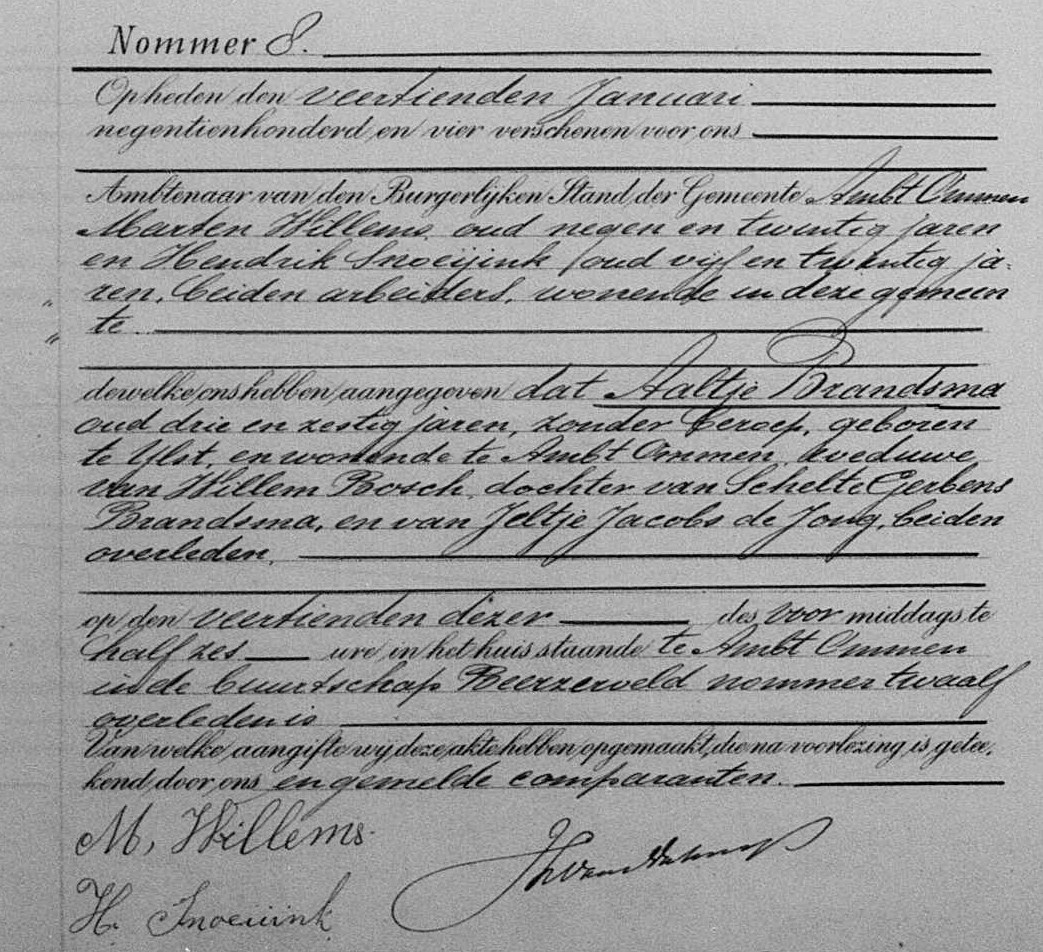 Nommer 8.
Op heden den veertienden Januari
negentienhonderd en vier verschenen voor ons
Ambtenaar van den Burgerlijken Stand der Gemeente Ambt Ommen
Marten Willems, oud negen en twintig jaren
en Hendrik Snoeijink, oud vijf en twintig ja-
ren, beiden arbeiders, wonende in deze gemeen
te.
dewelke ons hebben aangegeven dat Aaltje Brandsma
oud drie en zestig jaren, zonder beroep, geboren
te Ylst, en wonende te Ambt Ommen, weduwe
van Willem Bosch, dochter van Schelte Gerbens
Brandsma, en van Jeltje Jacobs de Jong, beiden
overleden,
op den veertienden dezer des voor middags te
half zes ure in het huis staande te Ambt Ommen
in de buurtschap Beerzerveld nommer twaalf
overleden is
Van welke aangifte wij deze akte hebben opgemaakt, die na voorlezing is getee-
kend door ons en gemelde comparanten.
M. Willems
H. Snoeiiink